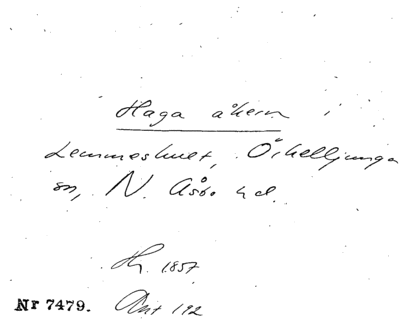 Haga åkern i
Lemmeshult, Örkelljunga
sn, N. Åsbo hd.
Hr. 1857
Nr 7479. Ant 192